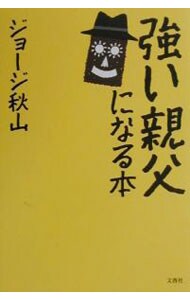 強い親父
になる本
ジョージ秋山
文芸社